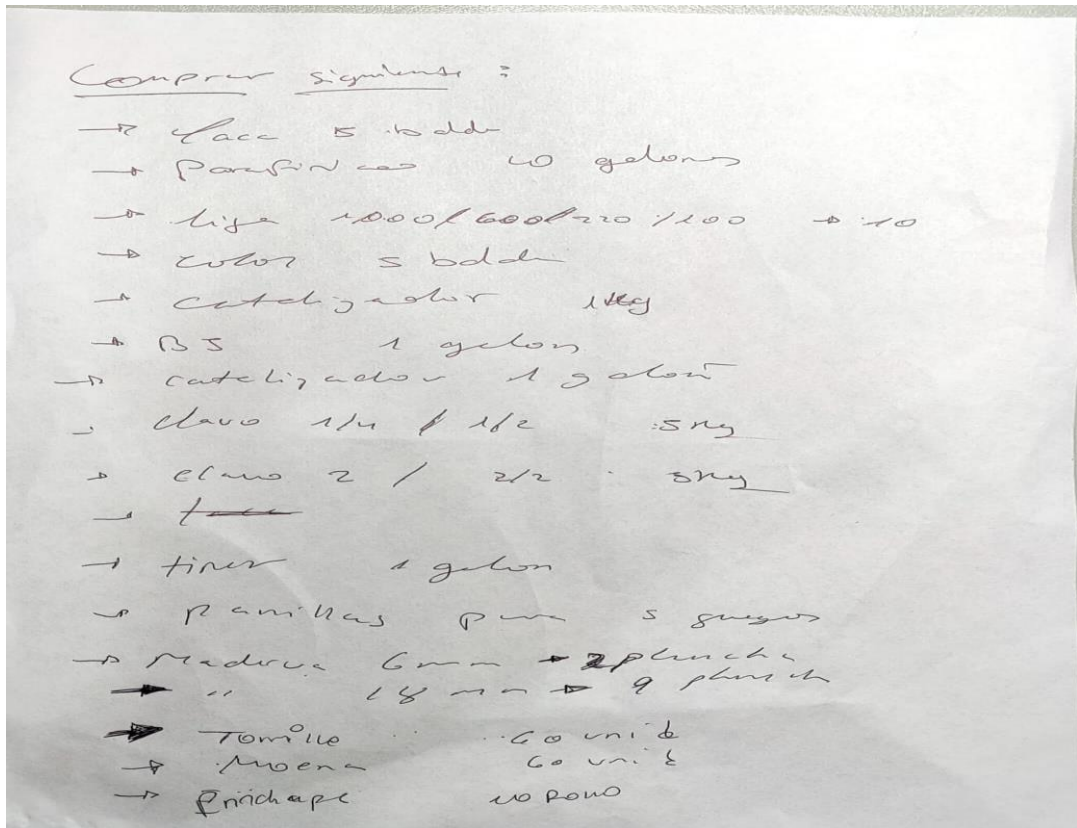 Comprar siguiense :
→ laca 5 balde
→ Parafinado 10 galones
→ lija 1000/600/220/100 → :10
→ color 5 balde
→ catalizador 1 Kg
→ BJ 1 galon
→ catalizador 1 galon
clavo 1/4 / 1/2 :5 Kg
→ clavo 2 / 2/2 : 5Kg
→
→ tiner 1 galon
→ panillas para 5 guegos
→ Madera 6 mm → 2 plancha
→ " 18 mm → 9 planch
→ Tornillo 60 unid
→ Moena 60 unid
→ Enichape 10 rollo